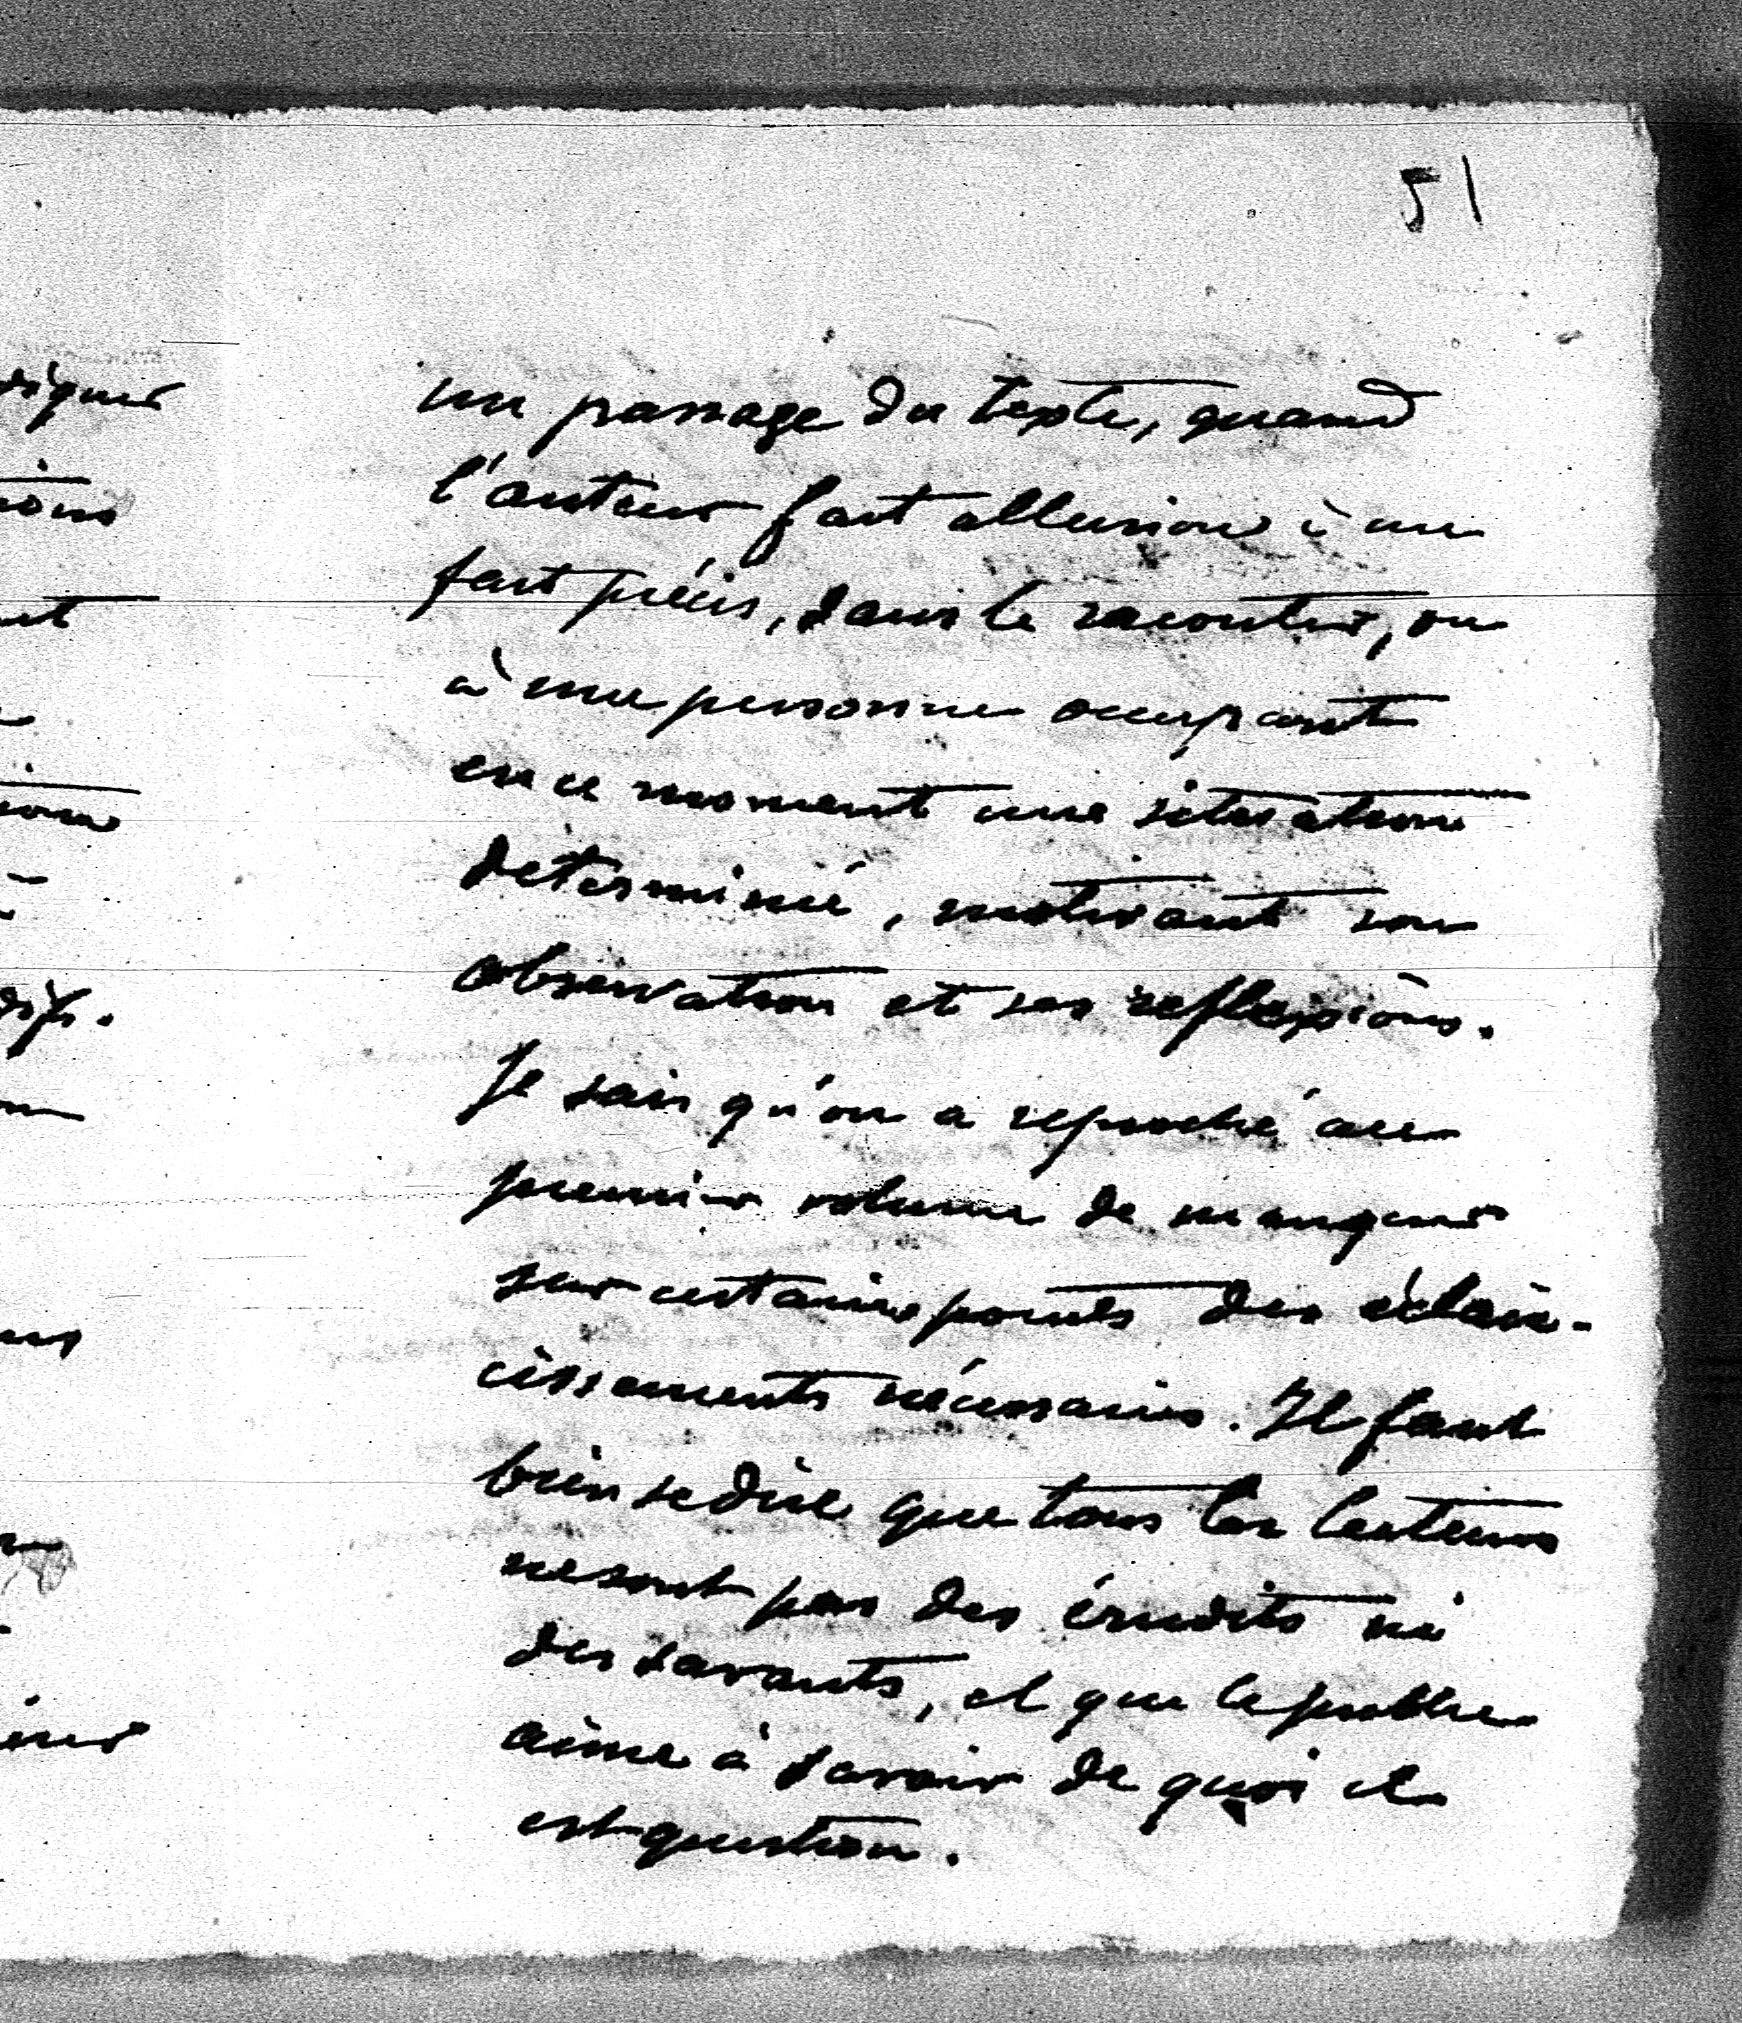 51
un passage du texte, quand
l'auteur fait allusion à un
fait précis, sans le raconter, ou
à une personne occupant
en ce moment une situation
determinée, motivant son
observation et ses reflexions.
Je sais qu'on a reproché au
premier volume de manquer
sur certains points des éclair-
cissements nécessaires. Il faut
bien se dire que tous les lecteurs
ne sont pas des érudits ni
des savants, et que le public
aime à savoir de quoi il
est question.